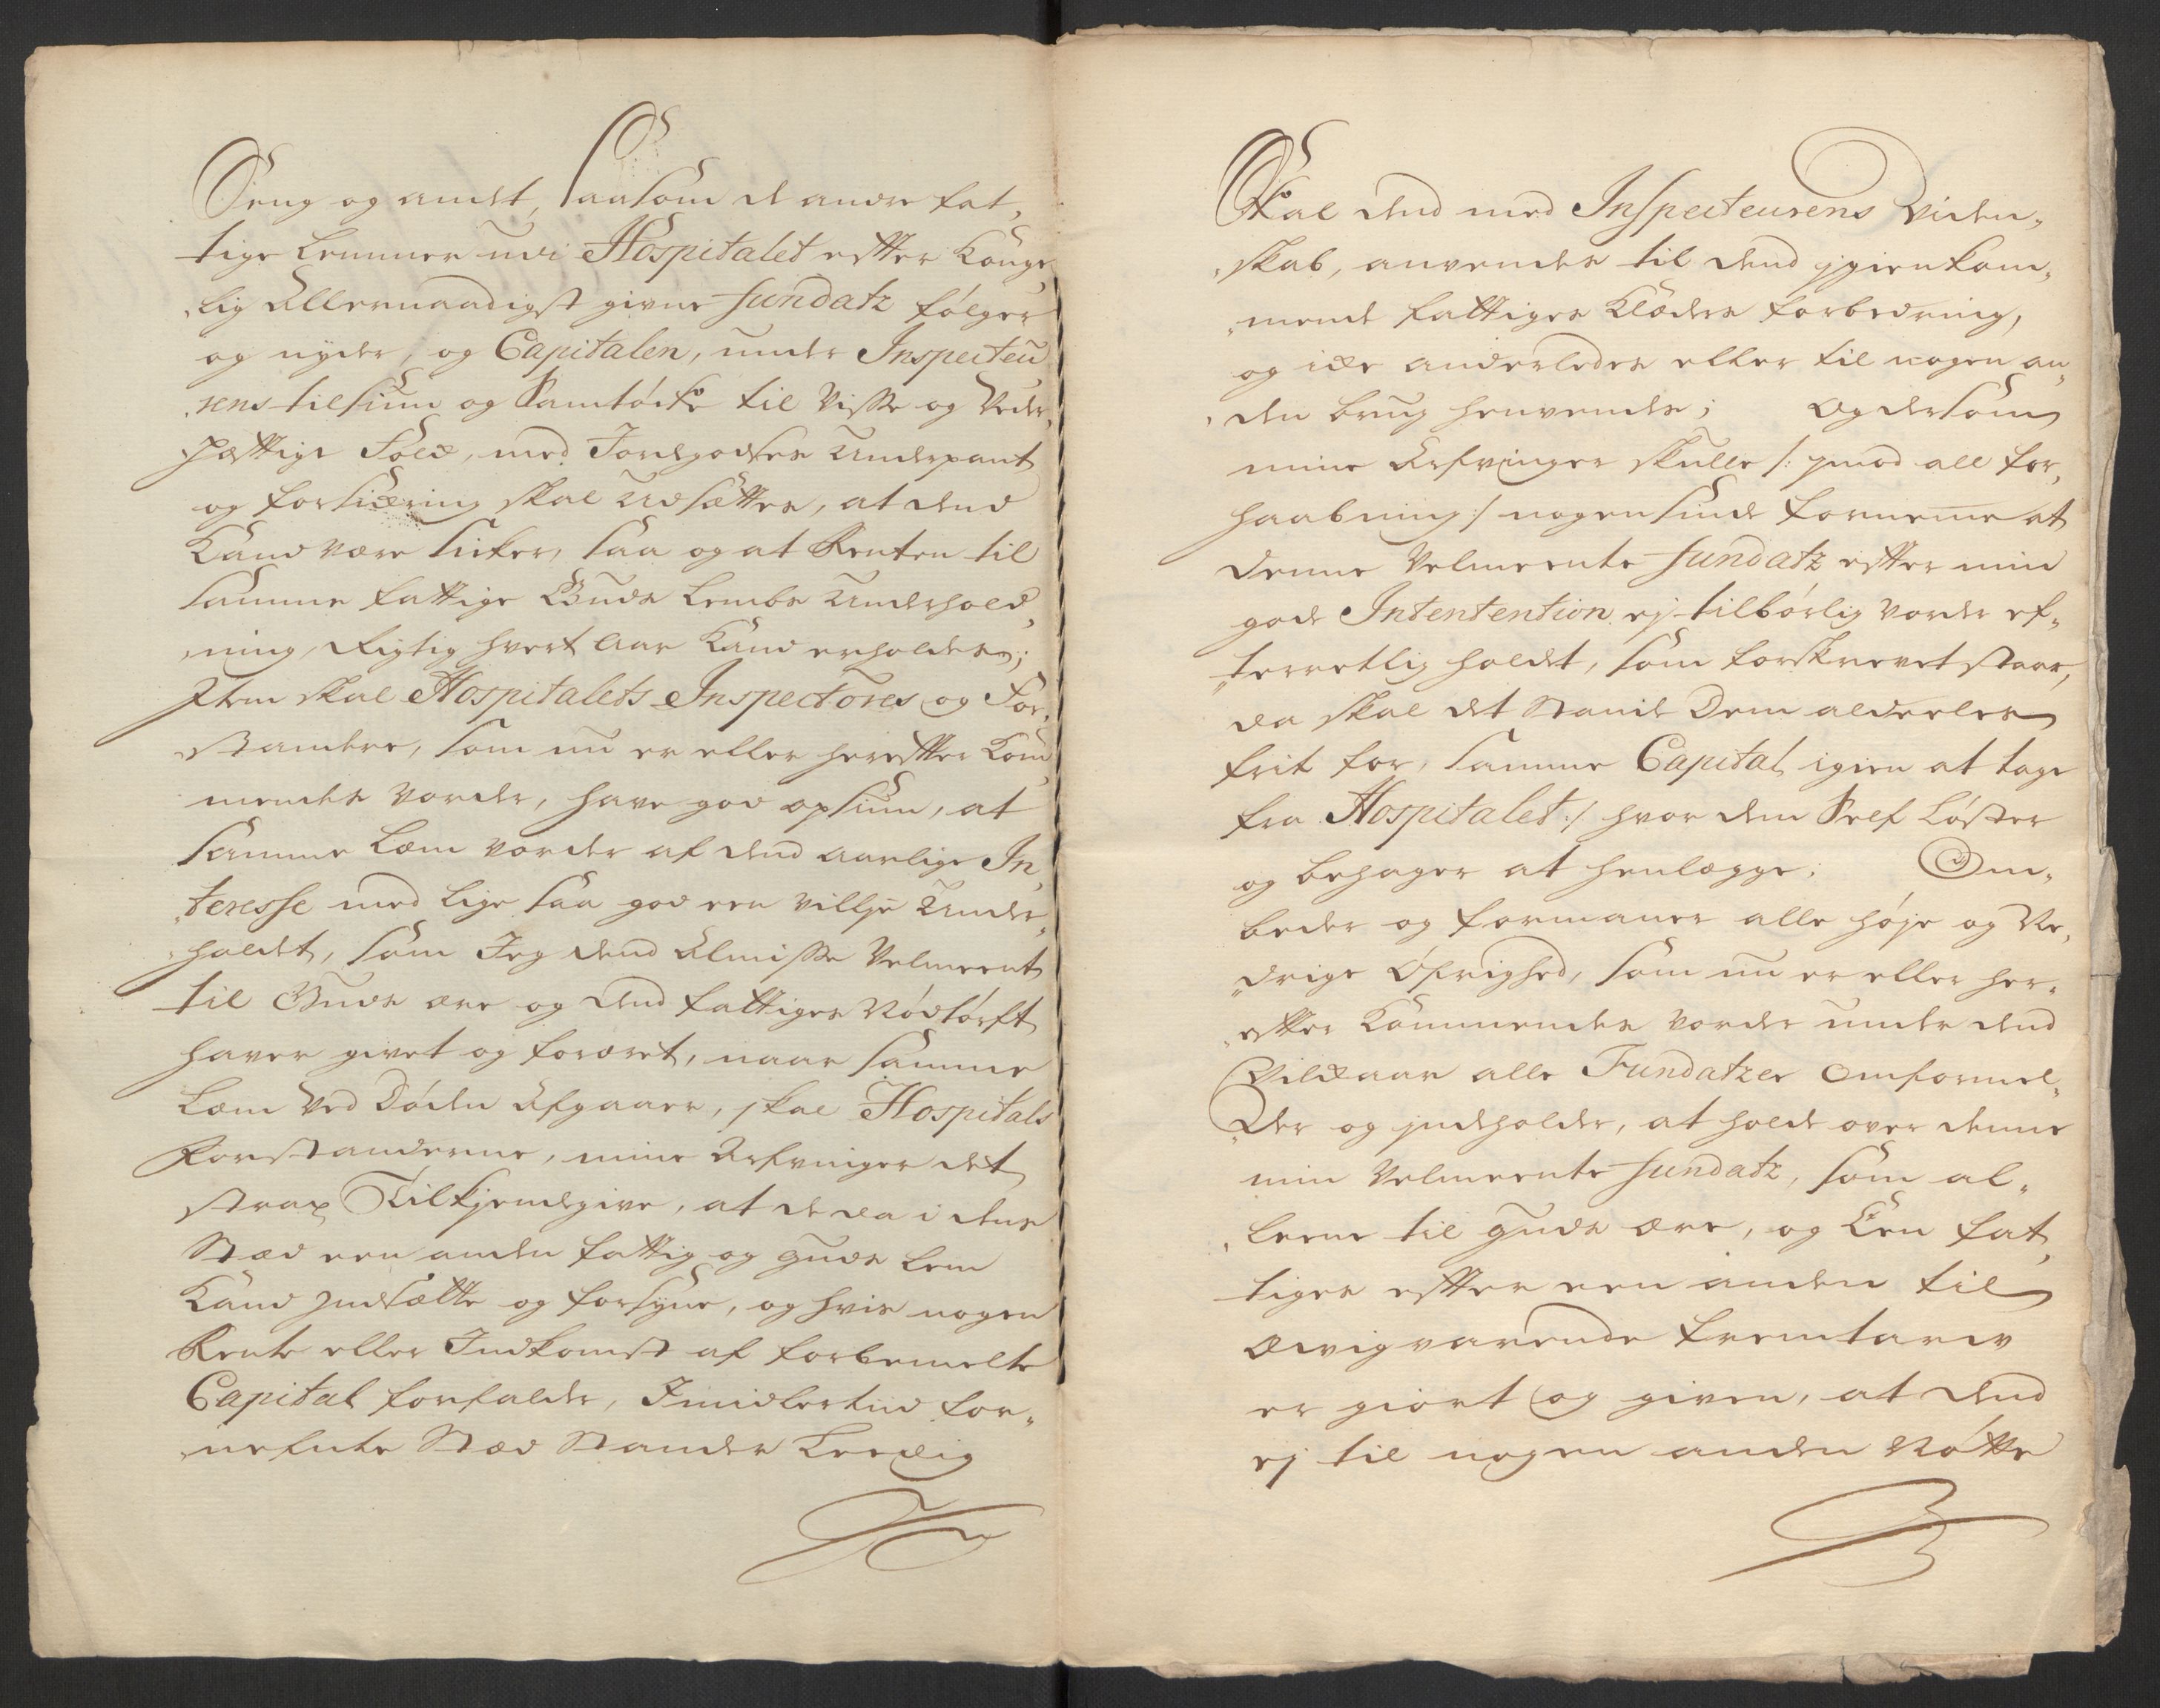 Seng og andet, saasom de andre fat„
tige Lemmer udi Hospitalet efter Konge„
„lig Allernaadigst givne fundatz følger
og nyder, og Capitalen, under Inspecteu„
„rens tilsiun og Samtöcke til Visse og Veder„
hæftige Folck, med Jordegodses Underpant
og forsickring skal Udsættes, at dend
Kand være sicker, saa og at Renten til
samme fattige Guds Lembs Underhold„
„ning, Rigtig hvert Aar Kand erholdes;
Item skal Hospitalets Inspectores og For„
„standere, som nu er eller herefter Kom„
mendes vorder, have god opsiun, at
samme Lem vorder af dend aarlige In„
„teresse med lige saa god een villje Under„
„holdet, som Jeg dend Almisse Velmeent
til Guds ære og dend fattiges Nödtörft
haver givet og foræret, naar samme
Lem ved Döden Afgaaer, skal Hospitals
Forstanderne, mine Arfvinger det
strax Tilkjendgive, at de da i dens
Stæd een anden fattig og Guds Lem
Kand indsætte og forsyne, og hvis nogen
Rente eller Indkomst af forbemelte
Capital forfalder, Imidlertiid for„
„nefnte Stæd Stander Leedig
Skal dend med Inspecteurens Viden„
„skab, anvendes til dend igienkom„
„mende fattiges Klæders forbedring,
og icke anderledes eller til nogen an„
„den brug henvendes; Og dersom
mine Arfvinger skulle /: imod all for„
haabning :/ nogensinde fornemme at
denne Velmeente fundatz efter min
gode Intentention ej tilbörlig vorder ef„
„terretlig holdt, som forskrevet staar,
da skal det stande Dem alderles
frit for, samme Capital igien at tage
fra Hospitalet :/ hvor dem Self Löster
og behager at henlægge; Om„
beder og formaner alle höje og Ne„
„drige Öfrighed, som nu er eller her„
„efter Kommendes vorder under dend
Vilckaar alle Fundatzer omformel„
„der og indholder, at holde over denne
min Velmeente fundatz, som al„
„leene til Guds ære, og Een fat„
tiges efter een anden til
Ævigvarende fremtarv
er giort og given, at dend
ej til nogen anden Nötte